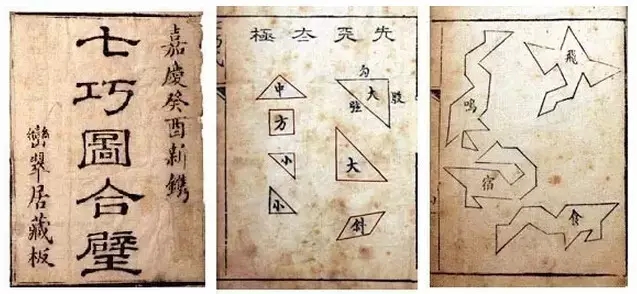 嘉慶癸酉新鐫
七巧圖合璧
巒翠居藏板
先天太極
勾
股
弦
大
大
斜
中
方
小
小
飛
鳴
宿
食